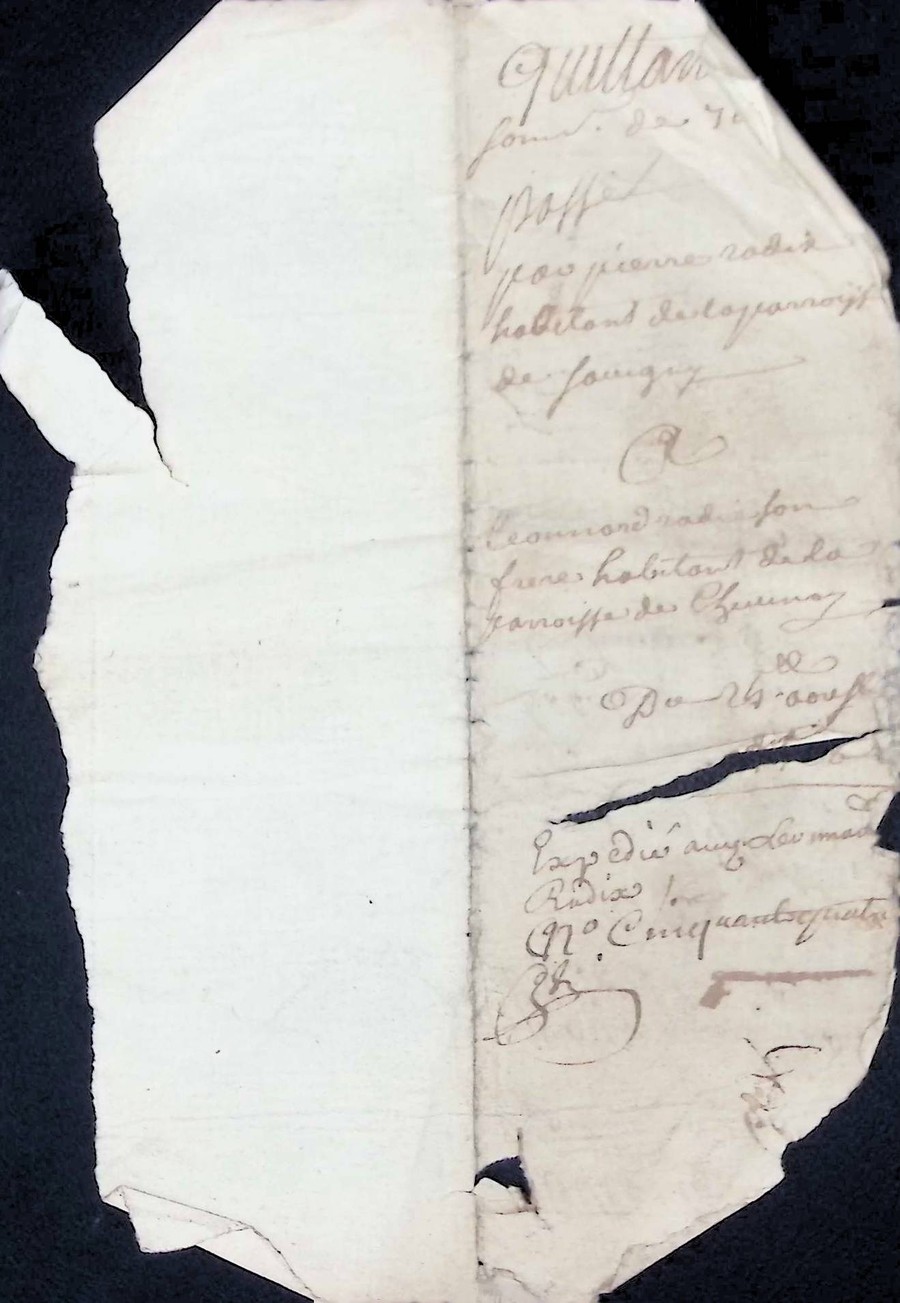 Quittan
Som.e de 70
Passée
par pierre radix
habitant de la parroiss
de Savigny
A
Leonnard radix son
frere habitant de la
parroisse de Cheuenay
Du 24 aoust
Expedié aud Leonnard
Radix
No Cinquante quatre